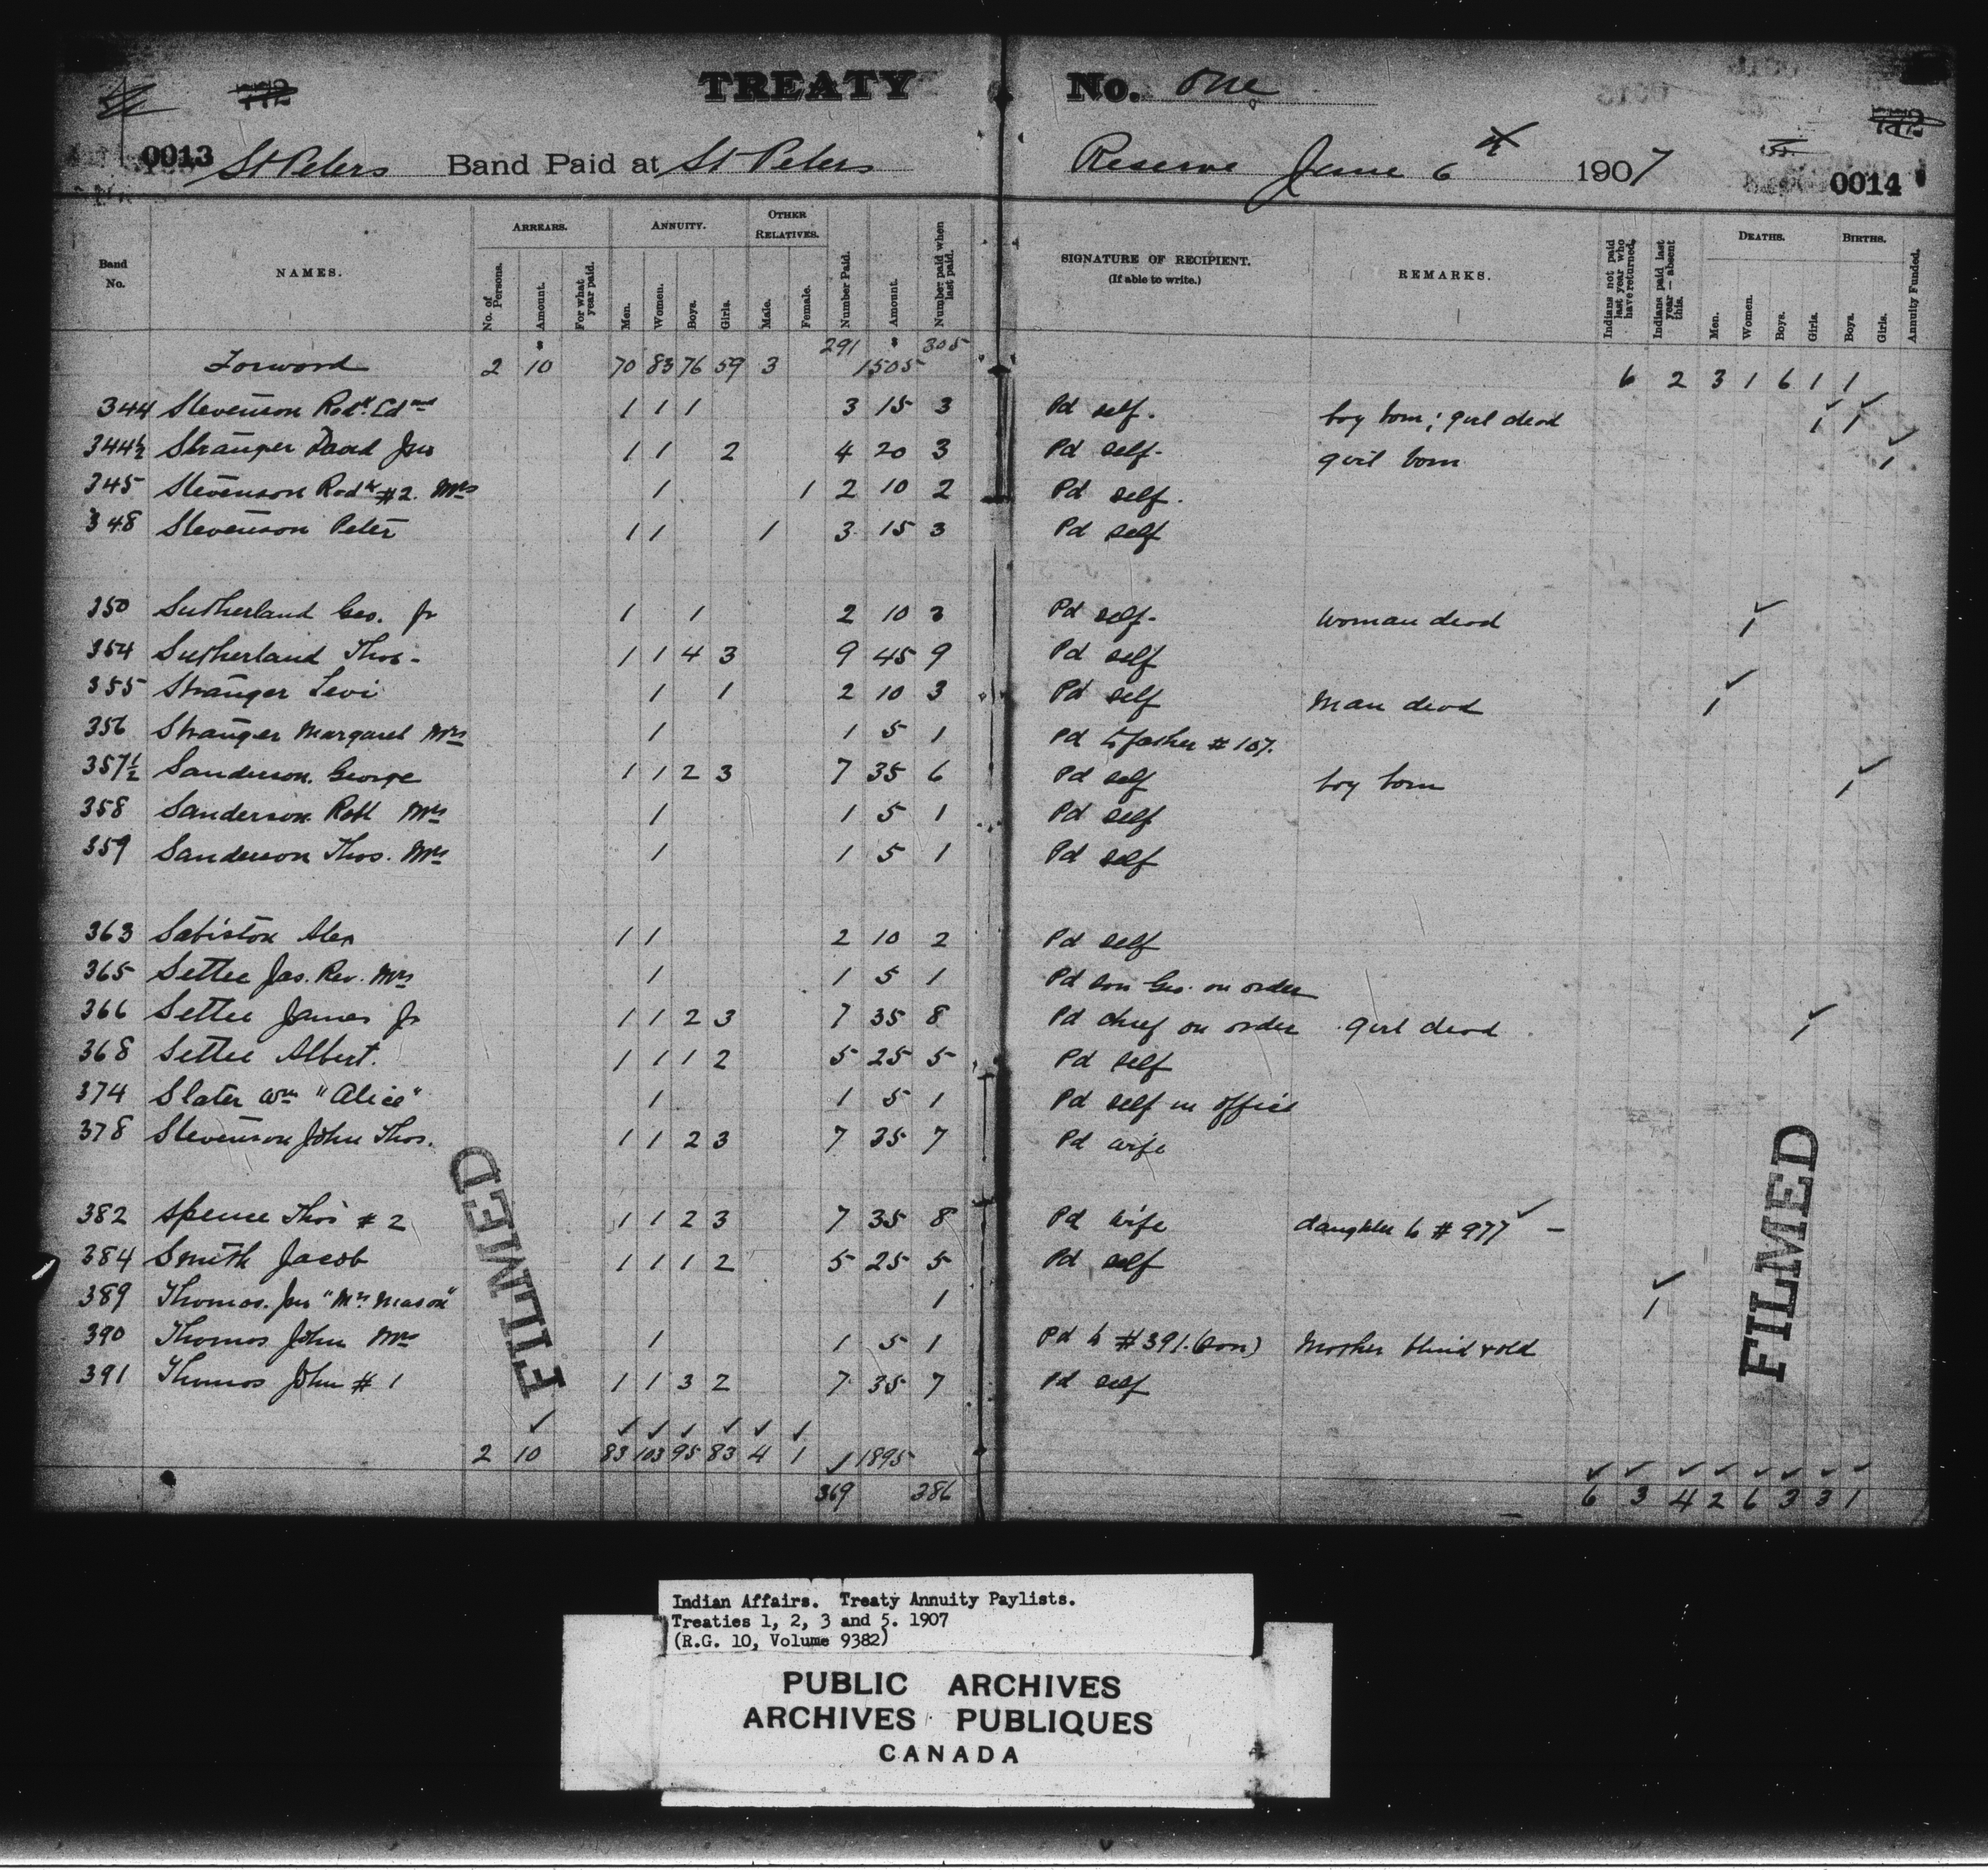 TREATY No. One
0013 St Peters Band Paid at St Peters Reserve June 6th 1907 0014
Band No. NAMES. ARREARS. No. of Persons. Amount. For what year paid. ANNUITY. Men. Women. Boys. Girls. OTHER RELATIVES. Male. Female. Number Paid. Amount. Number paid when last paid. SIGNATURE OF RECIPIENT. (If able to write.) REMARKS. Indians not paid last year who have returned. Indians paid last year — absent this. DEATHS. Men. Women. Boys. Girls. BIRTHS. Boys. Girls. Annuity Funded.
Forword 2 $10 70 83 76 59 3 291 $1505 305 6 2 3 1 6 1 1
344 Stevenson Rodk. Edmd 1 1 1 3 15 3 Pd self. boy born; girl dead 1 1
344½ Stranger David Jnr 1 1 2 4 20 3 Pd self. girl born 1
345 Stevenson Rodk #2. Mrs 1 1 2 10 2 Pd self.
348 Stevenson Peter 1 1 1 3 15 3 Pd self
350 Sutherland Geo. Jr 1 1 2 10 3 Pd self. woman dead 1
354 Sutherland Thos. 1 1 4 3 9 45 9 Pd self
355 Stranger Levi 1 1 2 10 3 Pd self man dead 1
356 Stranger Margaret Mrs 1 1 5 1 Pd to father # 107.
357½ Sanderson. George 1 1 2 3 7 35 6 Pd self boy born 1
358 Sanderson Robt Mrs 1 1 5 1 Pd self
359 Sanderson Thos. Mrs 1 1 5 1 Pd self
363 Sabiston Alex 1 1 2 10 2 Pd self
365 Settee Jas. Rev. Mrs 1 1 5 1 Pd son Geo. on order
366 Settee James Jr 1 1 2 3 7 35 8 Pd chief on order girl dead 1
368 Settee Albert. 1 1 1 2 5 25 5 Pd self
374 Slater Wm "Alice" 1 1 5 1 Pd self in office
378 Stevenson John Thos. 1 1 2 3 7 35 7 Pd wife
382 Spence Thos # 2 1 1 2 3 7 35 8 Pd wife daughter to # 977 –
384 Smith Jacob 1 1 1 2 5 25 5 Pd self
389 Thomas. Jas "Mrs Mason" 1 1
390 Thomas John Mrs 1 1 5 1 Pd to #391. (son) Mother blind & old
391 Thomas John # 1 1 1 3 2 7 35 7 Pd self
2 10 83 103 95 83 4 1 1895
369 386 6 3 4 2 6 3 3 1
FILMED
FILMED
Indian Affairs. Treaty Annuity Paylists.
Treaties 1, 2, 3 and 5. 1907
(R.G. 10, Volume 9382)
PUBLIC ARCHIVES
ARCHIVES PUBLIQUES
CANADA